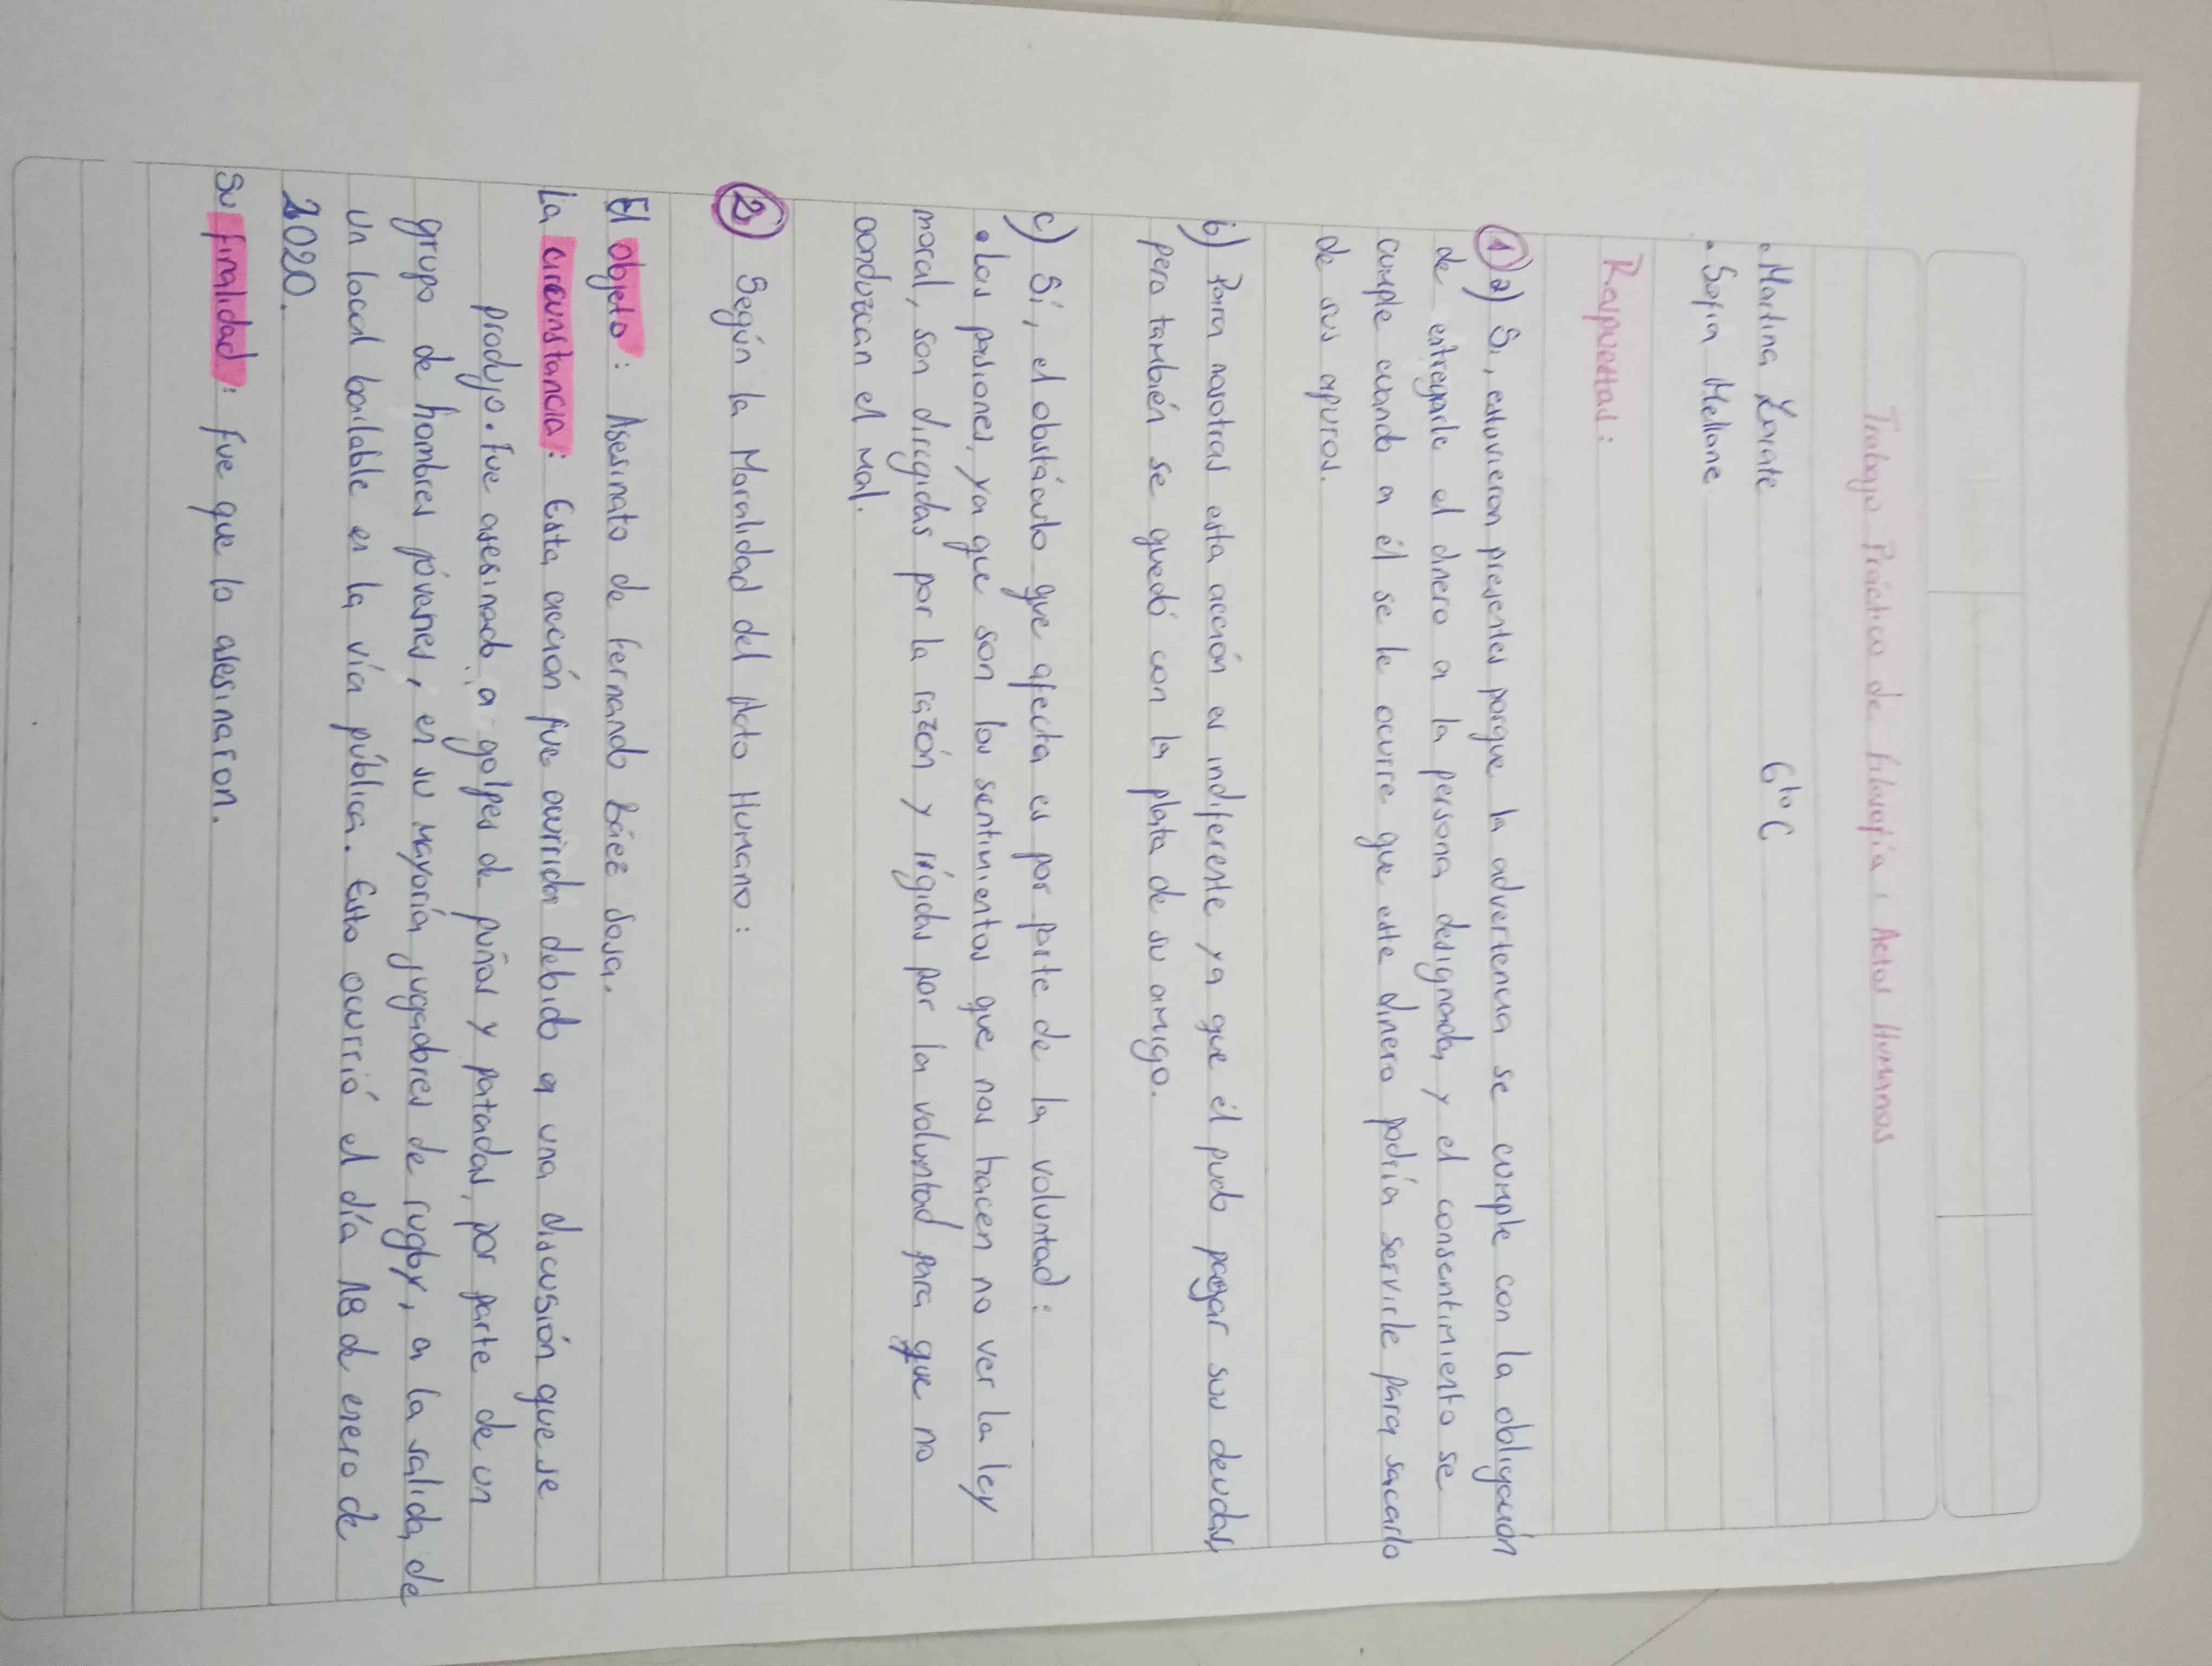 Trabajo Práctico de filosofía: Actos Humanos
• Martina Zarate 6to C
• Sofia Mellane
Respuestas:
1) a) Si, estuvieron presentes porque la advertencia se cumple con la obligación
de entregarle el dinero a la persona designada, y el consentimiento se
cumple cuando a él se le ocurre que este dinero podría servirle para sacarlo
de sus apuros.
b) Para nosotras esta acción es indiferente ya que él pudo pagar sus deudas,
pero también se quedó con la plata de su amigo.
c) Sí, el obstáculo que afecta es por parte de la voluntad:
• Las pasiones, ya que son los sentimientos que nos hacen no ver la ley
moral, son dirigidas por la razón y rígidas por la voluntad para que no
conduzcan el mal.
2) Según la Moralidad del Acto Humano:
El objeto: Asesinato de Fernando Báez Sosa.
La circunstancia: Esta acción fue ocurrida debido a una discusión que se
produjo. Fue asesinado a golpes de puños y patadas, por parte de un
grupo de hombres jóvenes, en su mayoría jugadores de rugby, a la salida de
un local bailable en la vía pública. Esto ocurrió el día 18 de enero de
2020.
Su finalidad: fue que lo asesinaron.